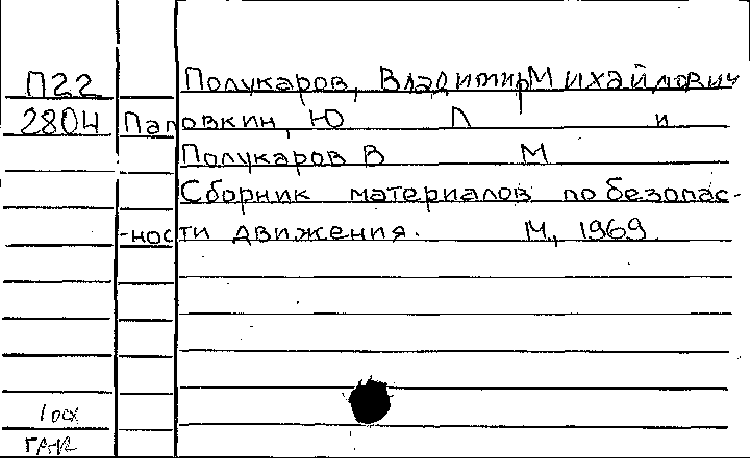 П22 Полукаров, Владимир Михайлович
2804 Паповкин, Ю П и
Полукаров В М
Сборник материалов по безопас-
-ности движения. М., 1969.